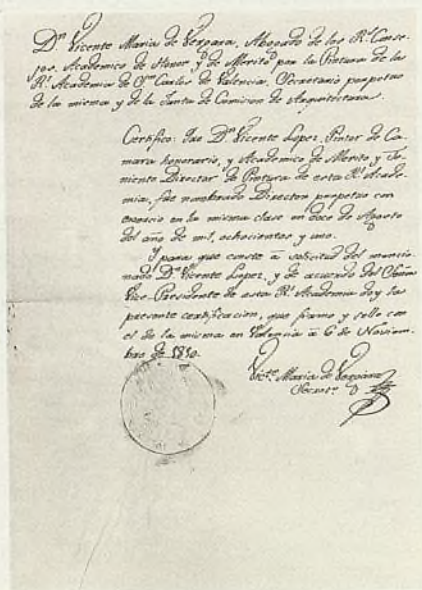 Dn. Vicente Maria de Vergara, Abogado de los Rs. Conse-
jos, Academico de Honor y de Merito por la Pintura de la
Rl. Academia de Sn. Carlos de Valencia, Secretario perpetuo
de la misma y de la Junta de Comision de Arquitectura.
Certifico: Que Dn. Vicente Lopez, Pintor de Ca-
mara honorario, y Academico de Merito y Te-
niente Director de Pintura de esta Rl. Acade-
mia, fue nombrado Director perpetuo con
exercicio en la misma clase en doce de Agosto
del año de mil, ochocientos y uno.
Y para que conste à solicitud del mencio-
nado Dn. Vicente Lopez, y de acuerdo del Señor
Vice-Presidente de esta Rl. Academia doy la
presente certificacion, que firmo y sello con
el de la misma en Valencia à 6 de Noviem-
bre de 1810.
Victe. Maria de Vergara
Secreto.